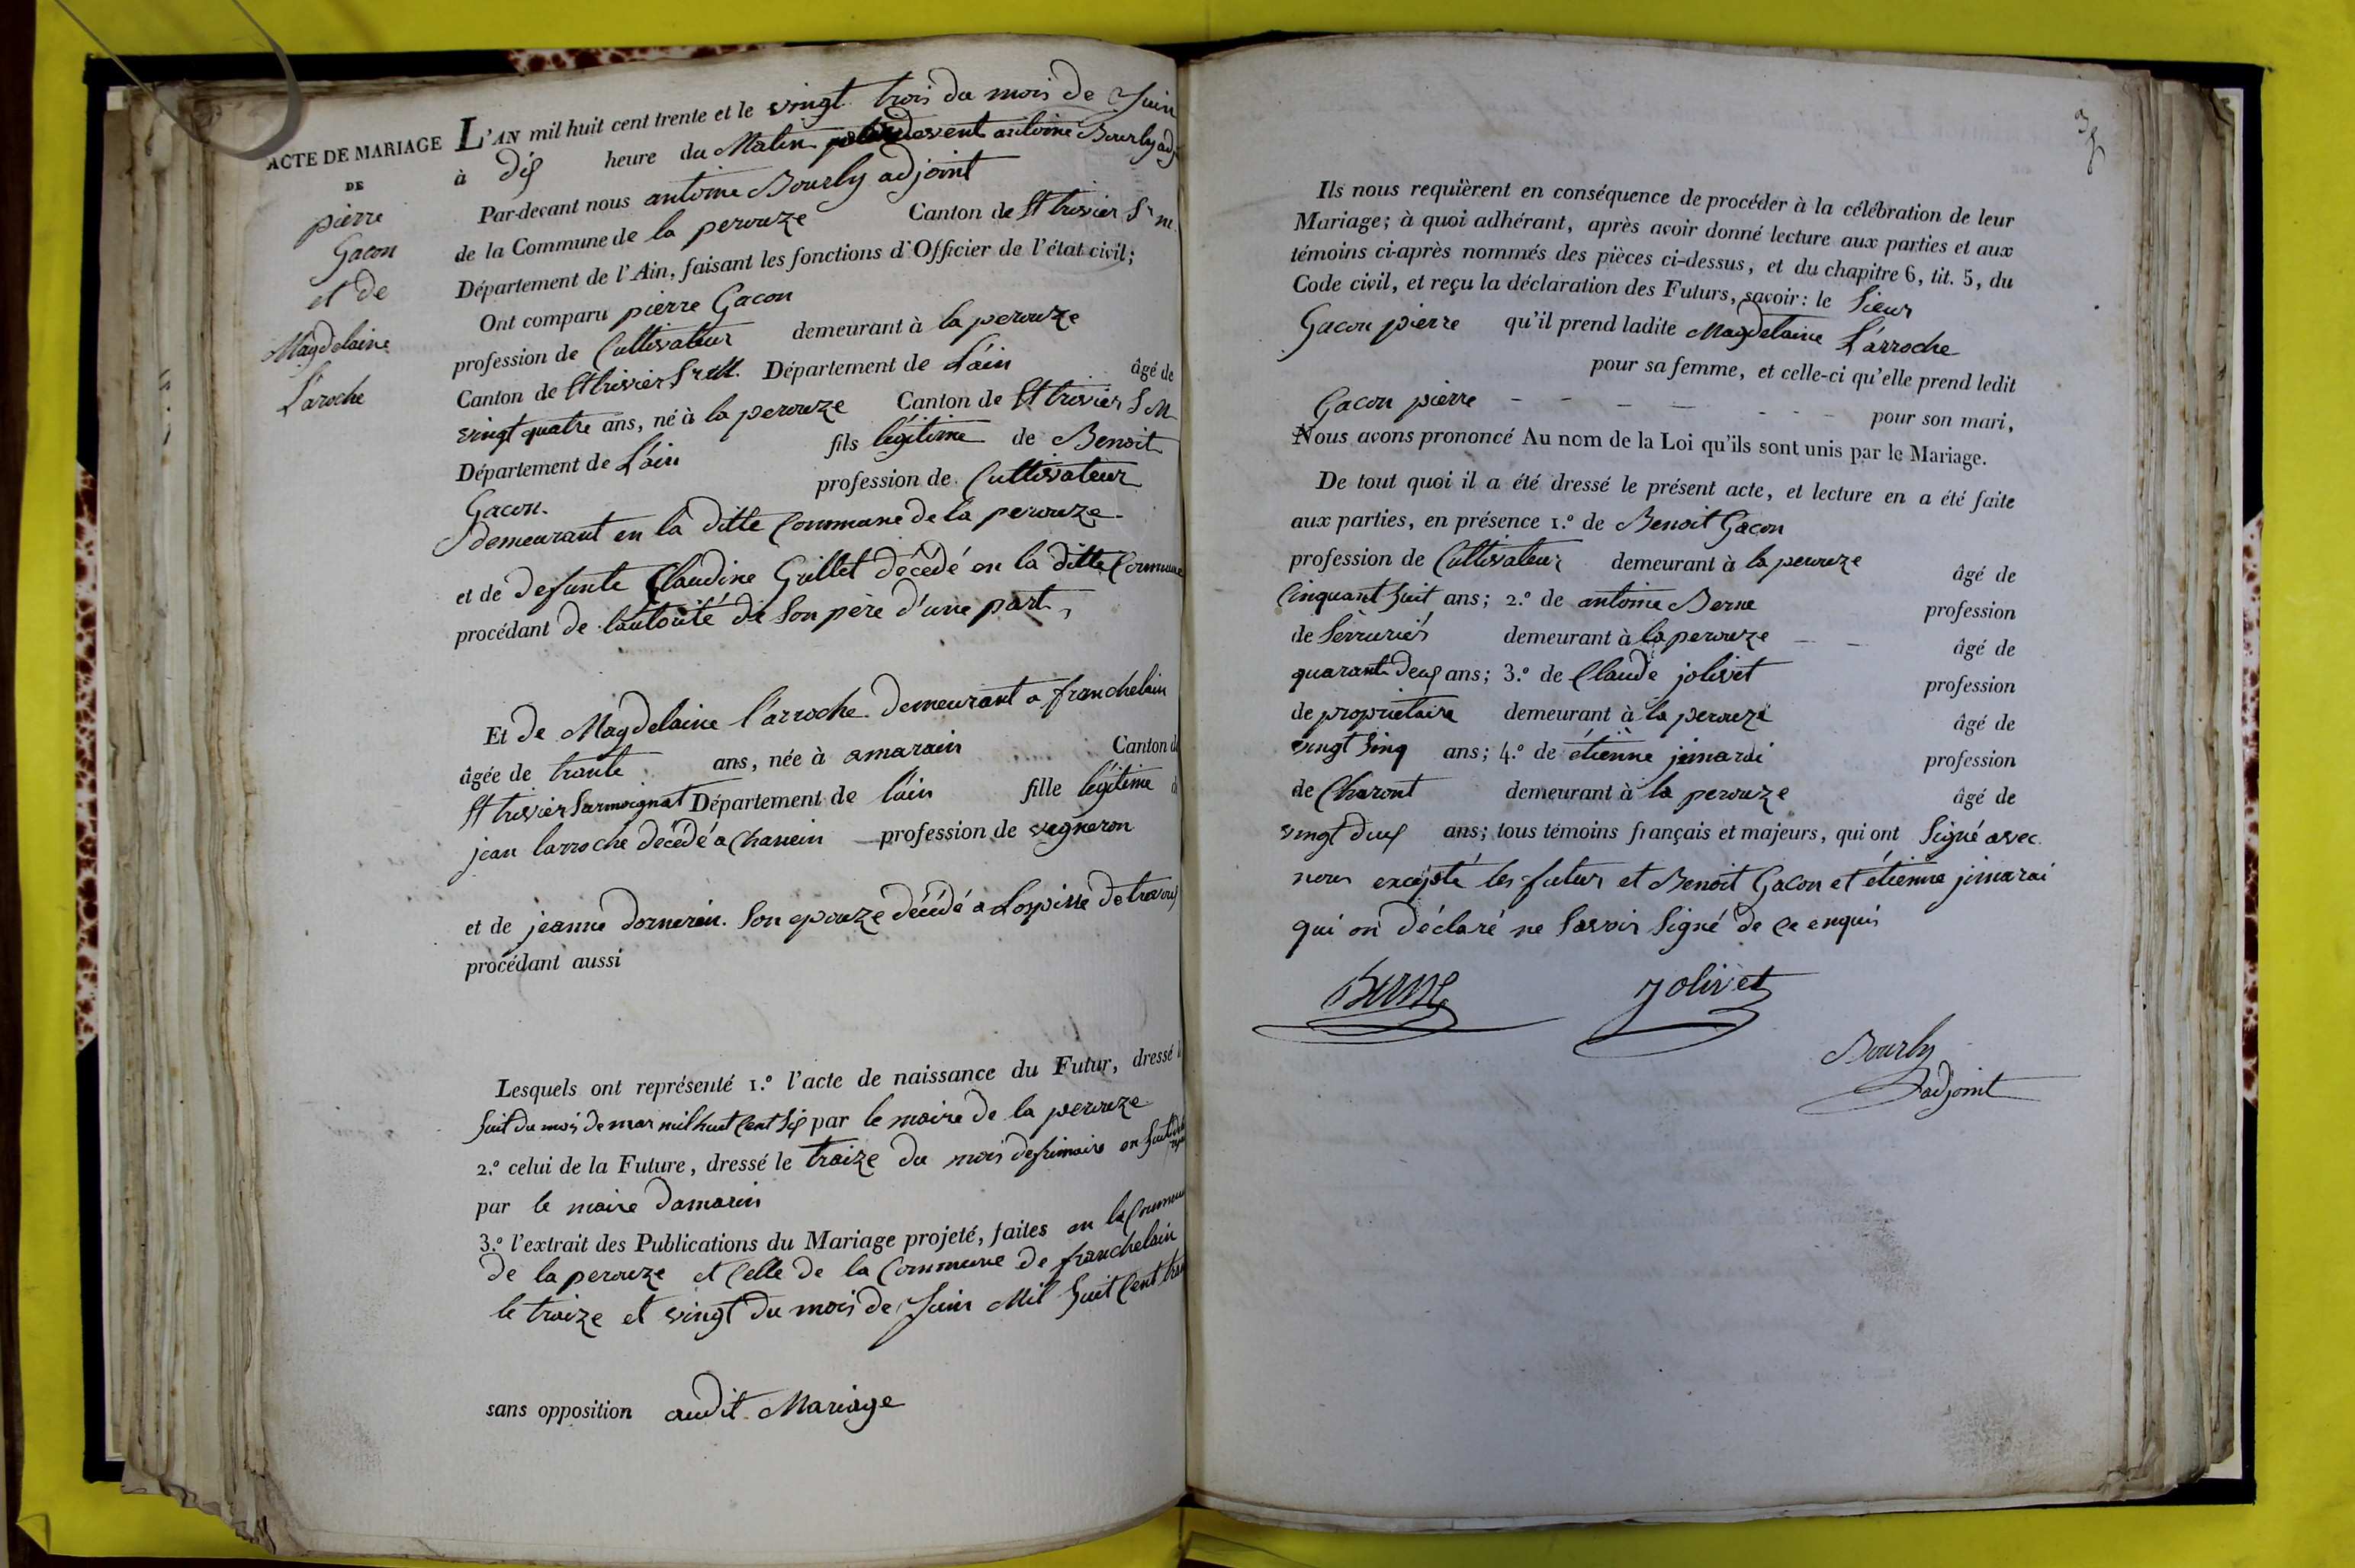 ACTE DE MARIAGE
DE
pierre
Gacon
et de
Magdelaine
Laroche
L'AN mil huit cent trente et le vingt trois du mois de Juin
à dix heure du Matin devent antoine Bourly adj
Par-devant nous antoine Bourly adjoint
de la Commune de la perouze Canton de St trivier Sr m.
Département de l'Ain, faisant les fonctions d'Officier de l'état civil;
Ont comparu pierre Gacon
profession de Cultivateur demeurant à la perouze
Canton de St trivier Sr M. Département de L'ain âgé de
vingt quatre ans, né à la perouze Canton de St trivier S M
Département de L'ain fils légitime de Benoit
Gacon. profession de Cultivateur
demeurant en la ditte Commune de la perouze
et de defunte Claudine Grillet décédé en la ditte Commune
procédant de l'autorité de Son père d'une part,
Et de Magdelaine l'arroche demeurant a franchelain
âgée de trante ans, née à amarain Canton de
St trivier Surmoignat Département de l'ain fille légitime d
jean larroche décédé a Chanein profession de vigneron
et de jeanne dornerin. Son epouze décédé a Lospisse de trevoux
procédant aussi
Lesquels ont représenté 1.º l'acte de naissance du Futur, dressé l
huit du mois de mar mil huit Cent Six par le maire de la perouze
2.º celui de la Future, dressé le traize du mois de frimaire en huit
par le maire damarein
3.º l'extrait des Publications du Mariage projeté, faites en la Commune
de la perouze et Celle de la Commune de franchelain
le traize et vingt du mois de Juin Mil huit Cent tran
sans opposition audit Mariage
Ils nous requièrent en conséquence de procéder à la célébration de leur
Mariage; à quoi adhérant, après avoir donné lecture aux parties et aux
témoins ci-après nommés des pièces ci-dessus, et du chapitre 6, tit. 5, du
Code civil, et reçu la déclaration des Futurs, savoir: le Sieur
Gacon pierre qu'il prend ladite Magdelaine L'arroche
pour sa femme, et celle-ci qu'elle prend ledit
Gacon pierre - - - - - - - pour son mari,
Nous avons prononcé Au nom de la Loi qu'ils sont unis par le Mariage.
De tout quoi il a été dressé le présent acte, et lecture en a été faite
aux parties, en présence 1.º de Benoit Gacon
profession de Cultivateur demeurant à la perouze âgé de
Cinquant huit ans; 2.º de antoine Berne profession
de Serruriér demeurant à la perouze - - âgé de
quarant deux ans; 3.º de Claude jolivet profession
de propriétaire demeurant à la perouze âgé de
vingt Sinq ans; 4.º de étienne jimardi profession
de Charont demeurant à la perouze âgé de
vingt deux ans; tous témoins français et majeurs, qui ont Signé avec
nous excepté les futur et Benoit Gacon et étienne jimarai
qui on déclaré ne Savoir Signé de Ce enquis
Berne Jolivet
Bourly
adjoint